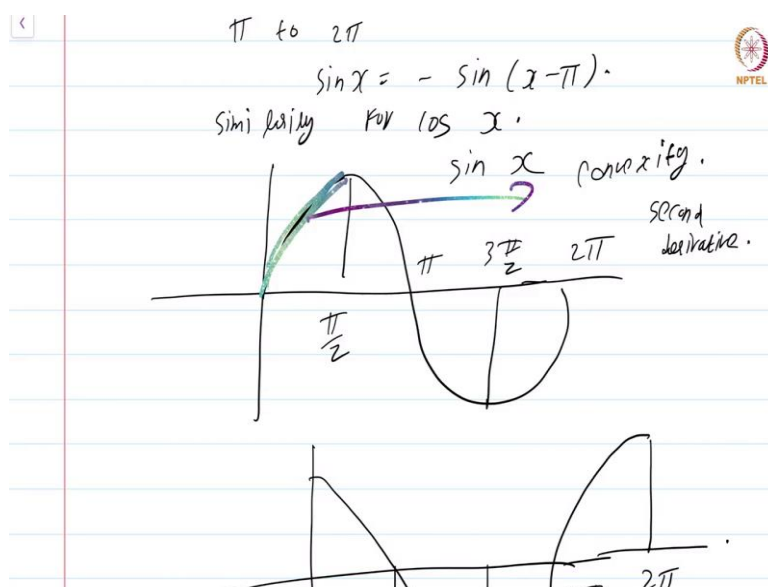 π to 2π
sin x = - sin (x-π).
NPTEL
Similarily for cos x.
sin x convexity.
second
derivative.
π 3π/2 2π
π/2
2π